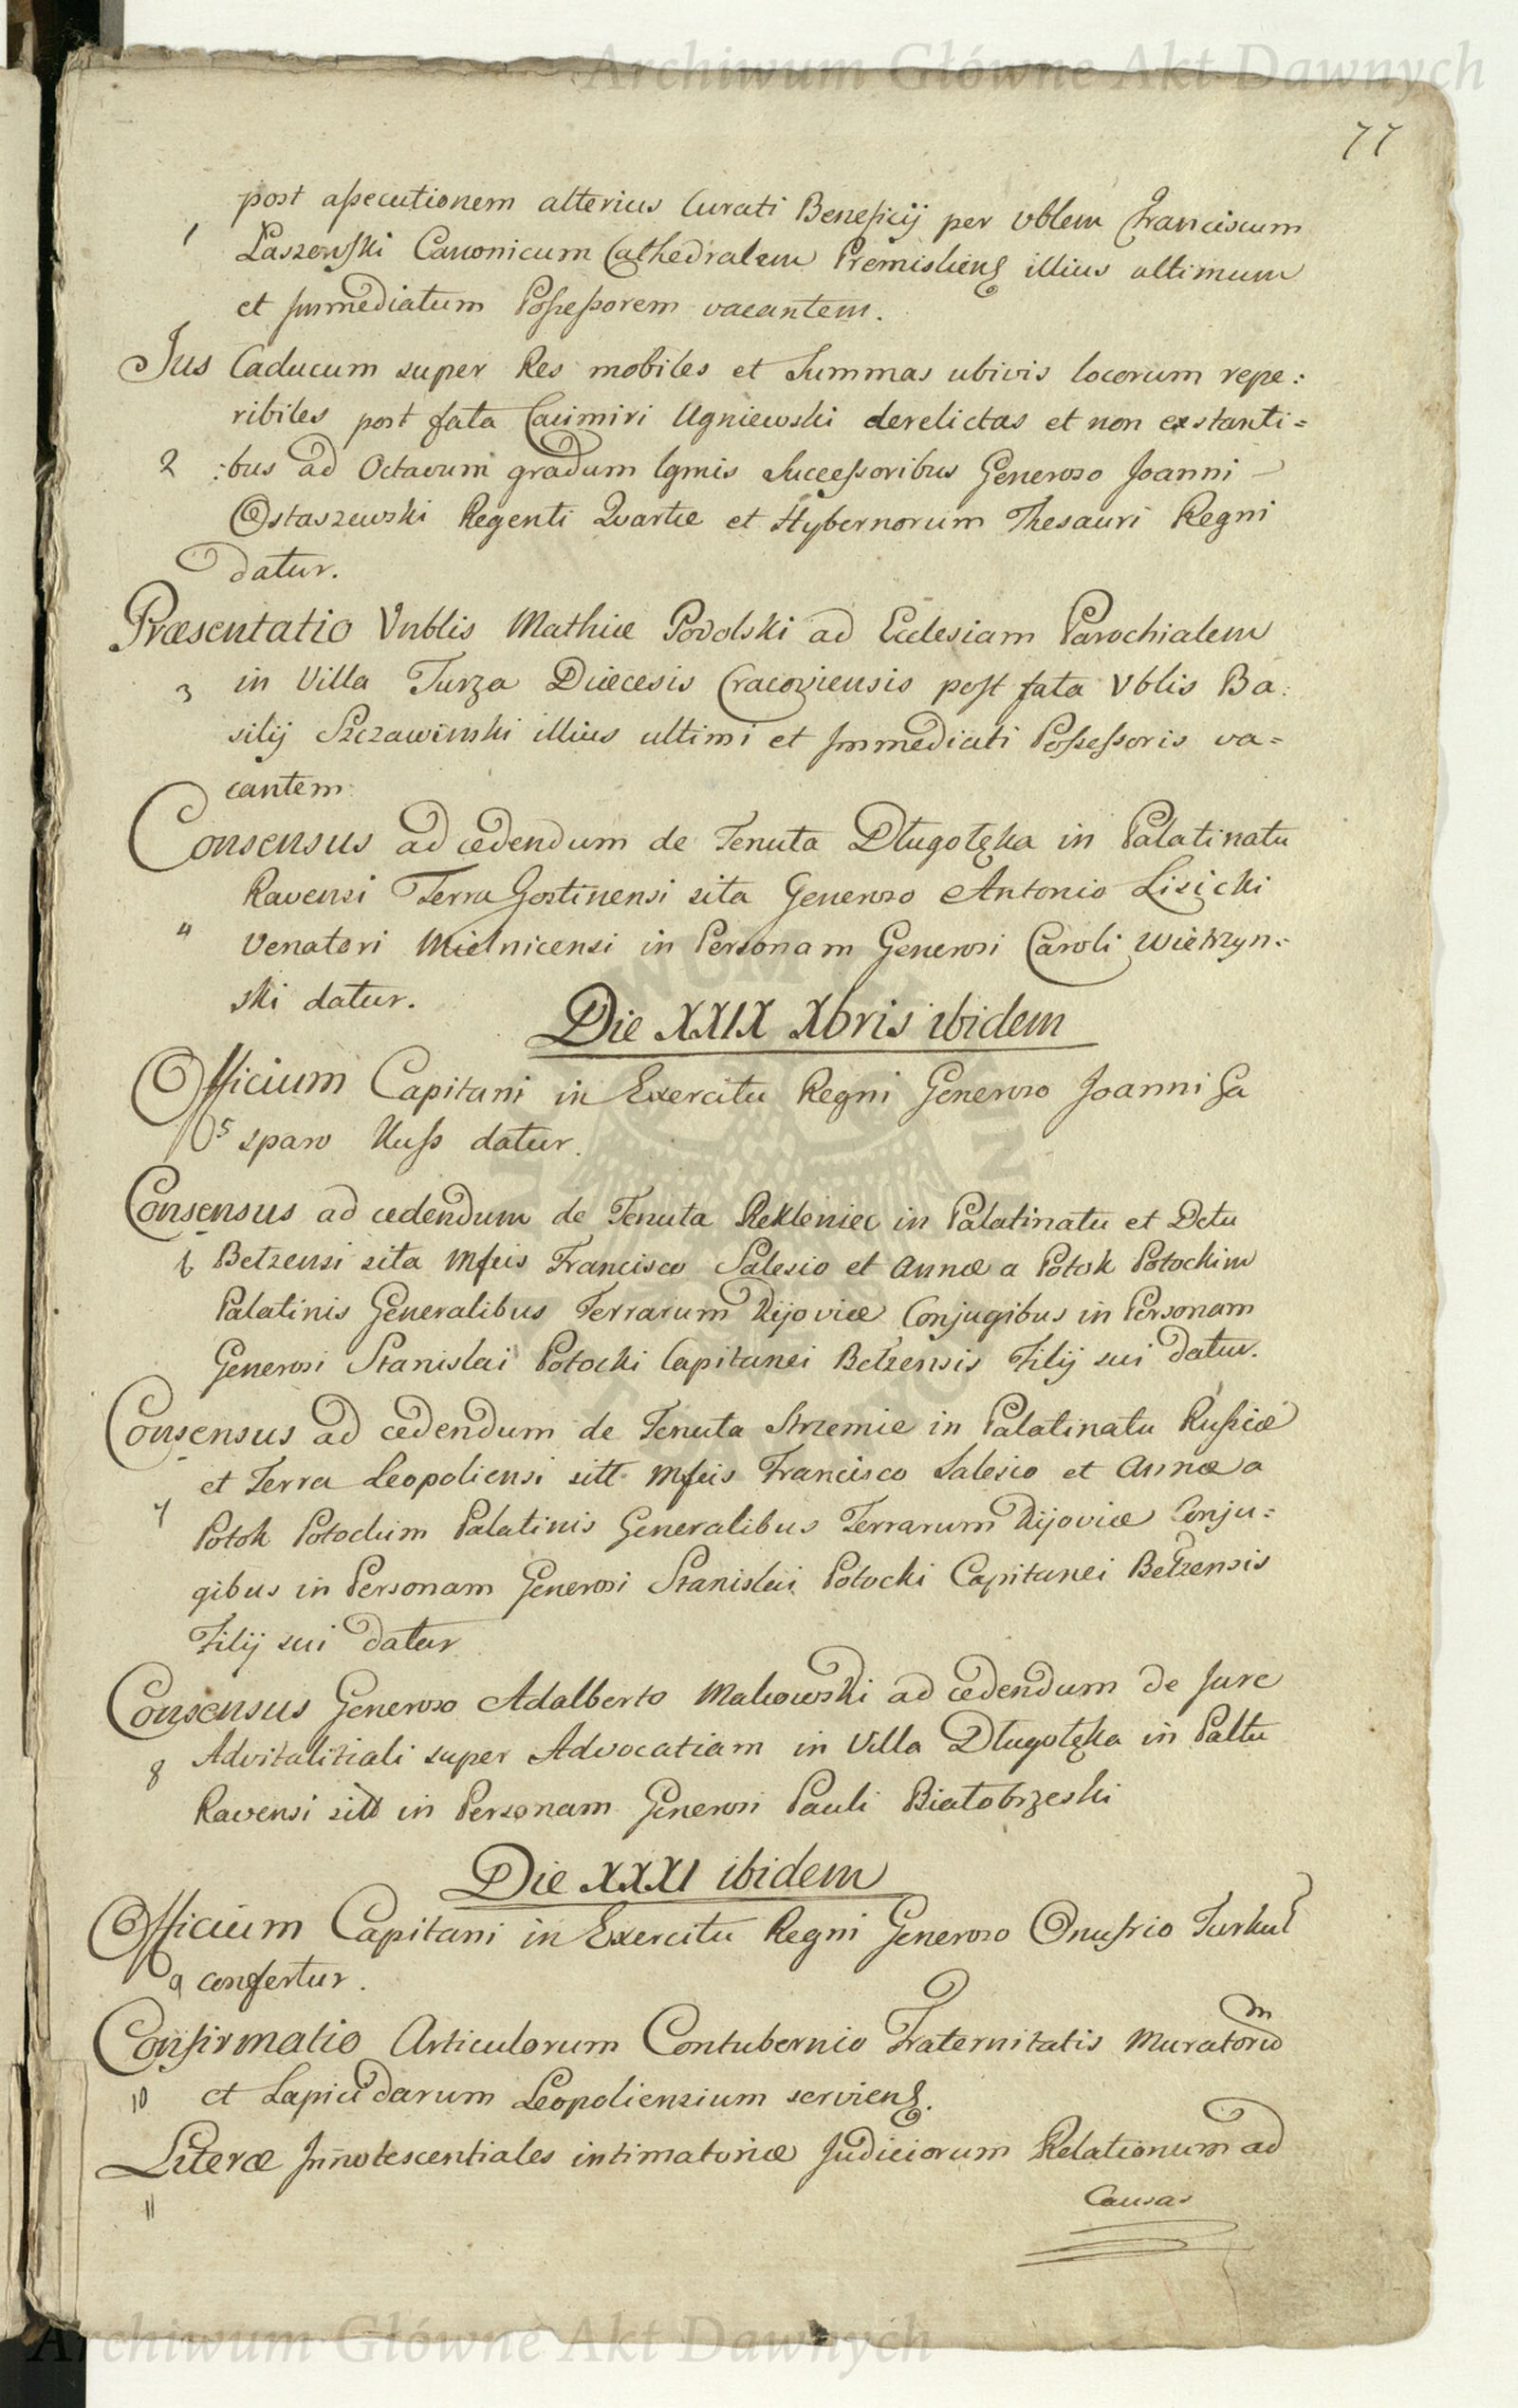 Archiwum Główne Akt Dawnych
77
post assecutionem alterius Curati Beneficij per Vblem Franciscum
1 Laszewski Canonicum Cathedralem Premisliens illius ultimum
et Immediatum Possessorem vacantem.
Jus Caducum super Res mobiles et Summas ubivis locorum repe:
ribiles post fata Casimiri Ugniewski derelictas et non exstanti=
2 :bus ad Octavum gradum lgmis Successoribus Generoso Joanni
Ostaszewski Regenti Quartæ et Hybernorum Thesauri Regni
datur.
Præsentatio Vnblis Mathiæ Podolski ad Ecclesiam Parochialem
3 in Villa Turza Diæcesis Cracoviensis post fata Vblis Ba:
silij Szczawinski illius ultimi et Immediati Possessoris va=
cantem
Consensus ad cedendum de Tenuta Długołęka in Palatinatu
Ravensi Terra Gostinensi sita Generoso Antonio Lisicki
4 Venatori Mielnicensi in Personam Generosi Caroli Wietrzyn=
ski datur.
Die XXIX Xbris ibidem
Officium Capitani in Exercitu Regni Generoso Joanni Ga
5 sparo Kuss datur.
Consensus ad cedendum de Tenuta Rekleniec in Palatinatu et Dctu
6 Betzensi sita Mfcis Francisco Salesio et Annæ a Potok Potockim
Palatinis Generalibus Terrarum Kijoviæ Conjugibus in Personam
Generosi Stanislai Potocki Capitanei Betzensis Filij sui datur.
Consensus ad cedendum de Tenuta Strzemie in Palatinatu Russiæ
et Terra Leopoliensi sitt Mfcis Francisco Salesio et Annæ a
7 Potok Potockim Palatinis Generalibus Terrarum Kijoviæ Conju=
gibus in Personam Generosi Stanislai Potocki Capitanei Betzensis
Filij sui datur
Consensus Generoso Adalberto Makowski ad cedendum de Jure
8 Advitalitiali super Advocatiam in Villa Długołęka in Paltu
Ravensi sitt in Personam Generosi Pauli Białobrzeski
Die XXXI ibidem
Officium Capitani in Exercitu Regni Generoso Onufrio Turkuł
9 confertur.
Confirmatio Articulorum Contubernio Fraternitatis Muratorum
10 et Lapicidarum Leopoliensium serviens.
Literæ Innotescentiales intimatoriæ Judiciorum Relationum ad
11
Causas
Archiwum Główne Akt Dawnych